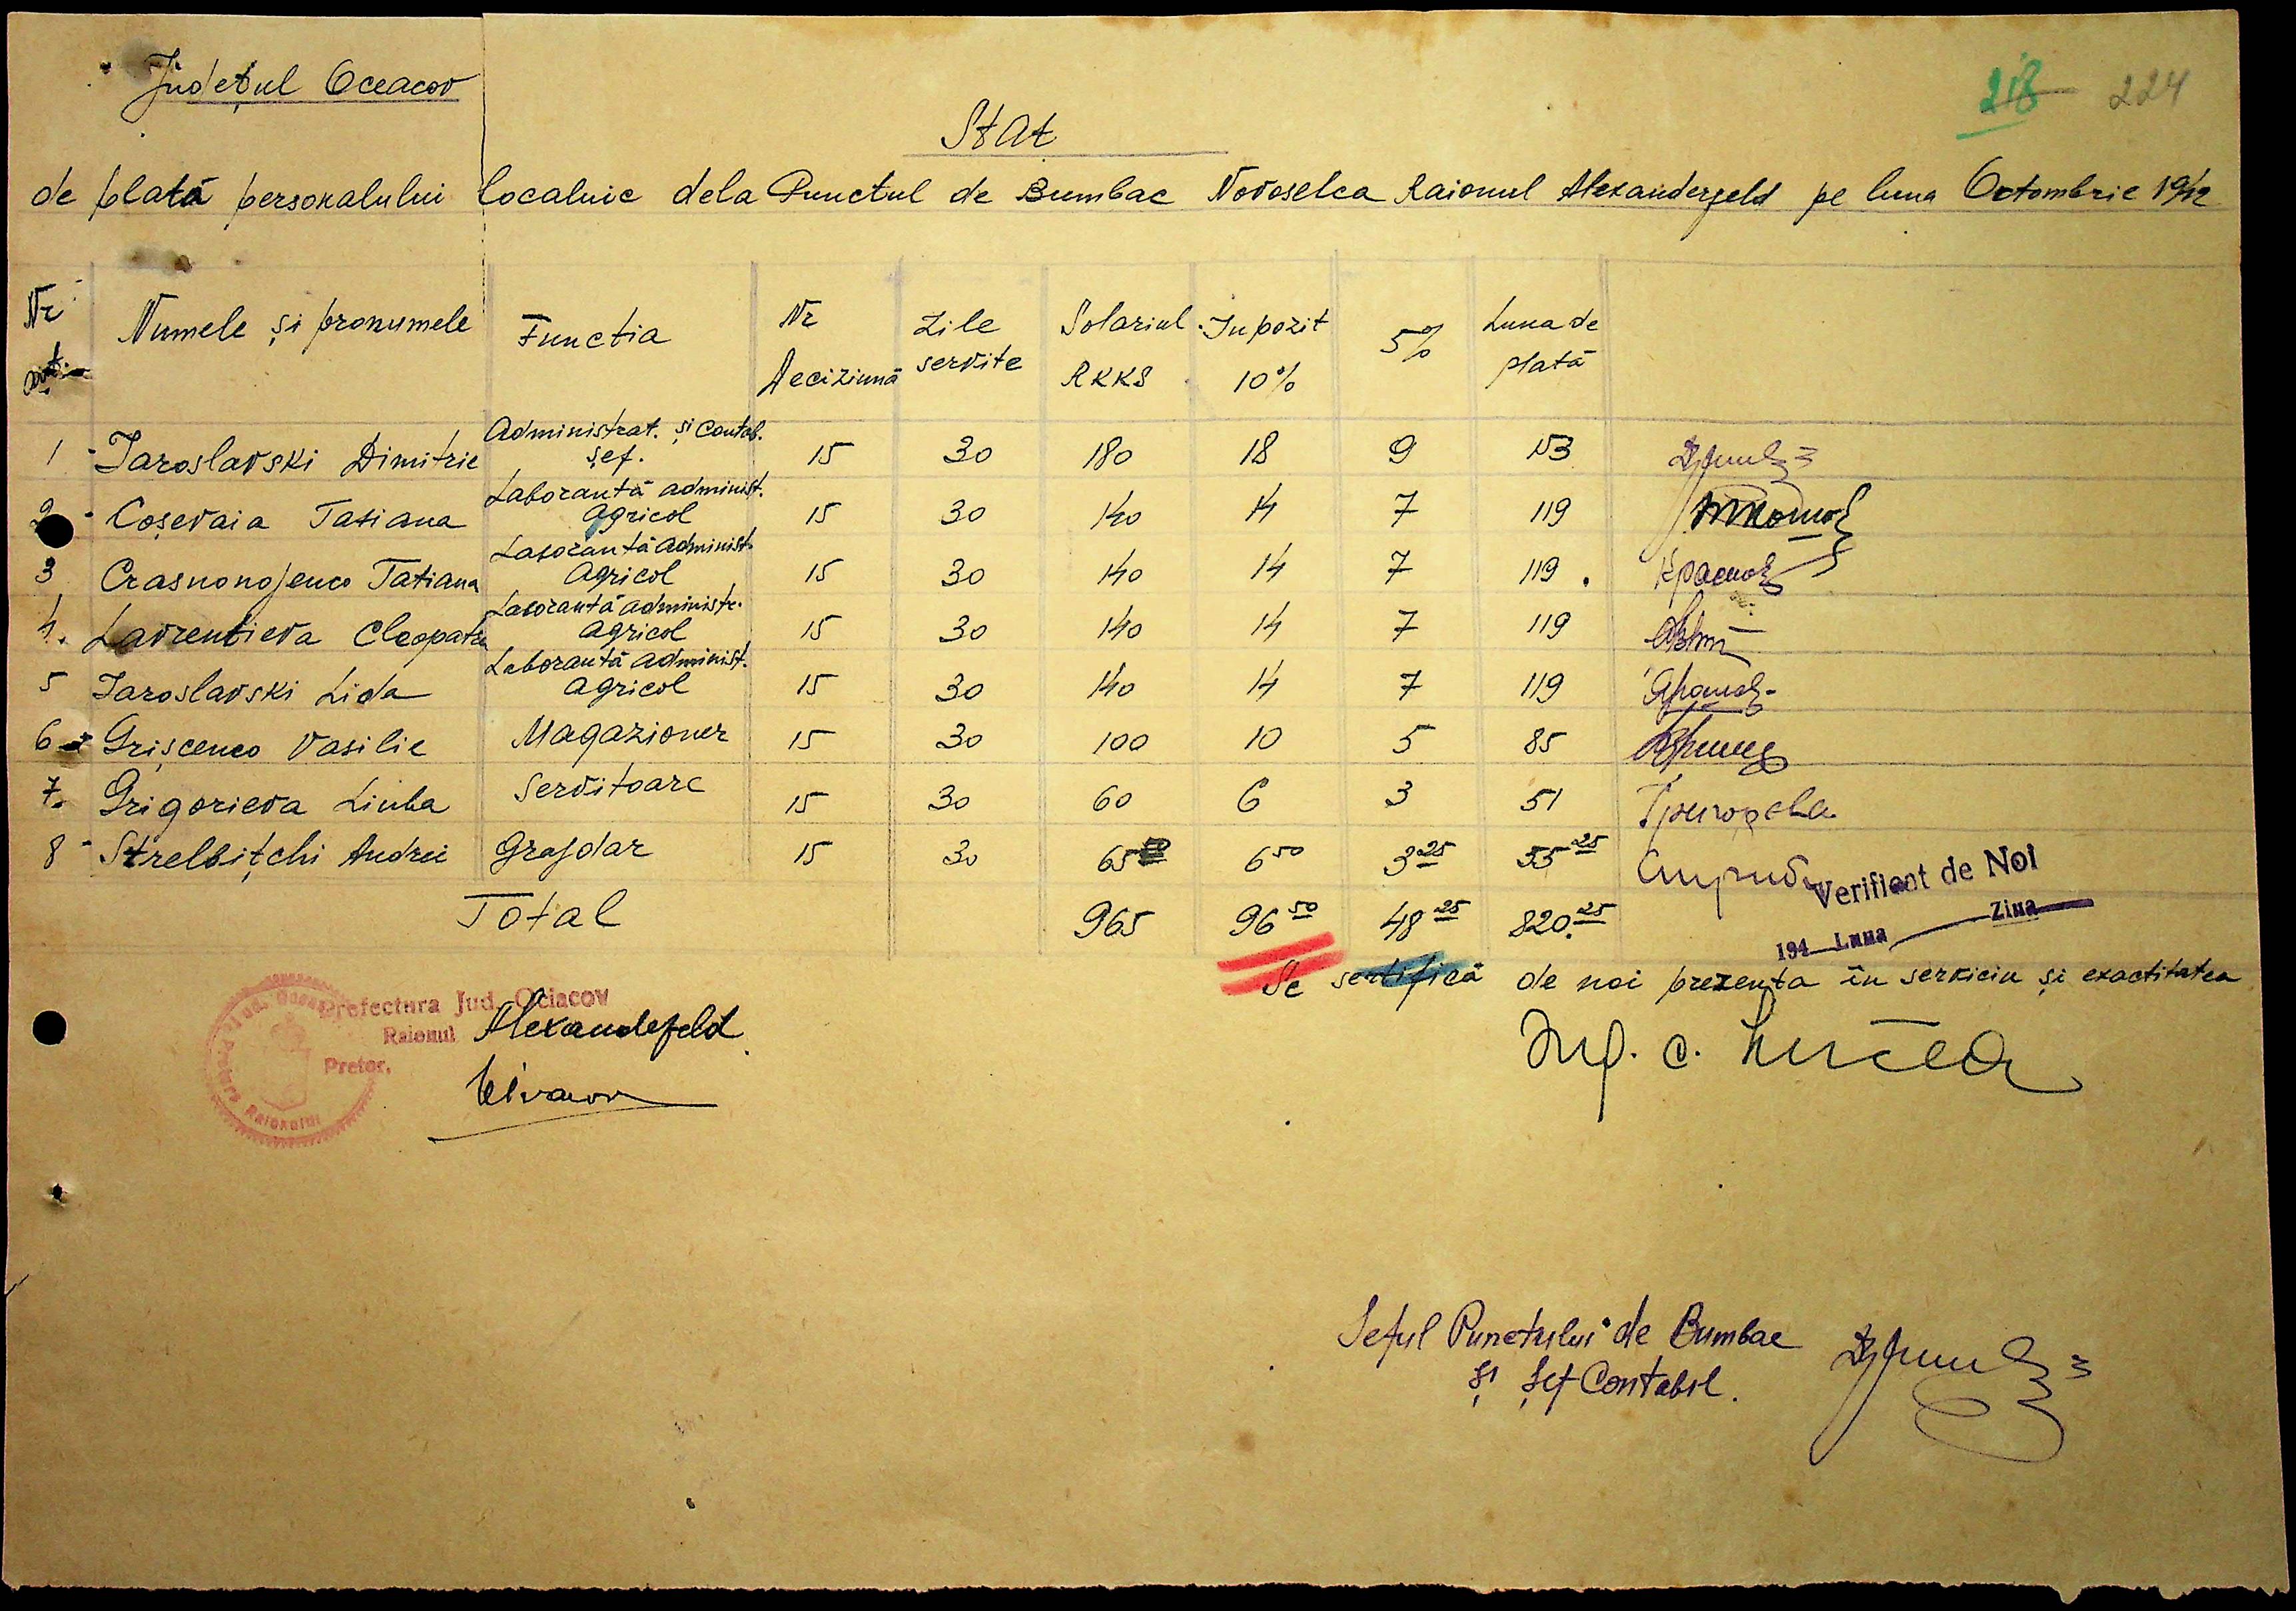 Județul Oceacov
218 224
Stat
de plată personalului localnic dela Punctul de Bumbac Novoselca Raionul Alexanderfeld pe luna Octombrie 1942
Nr ort. Numele și pronumele Functia Nr Decizună Zile servite Solariul RKKS Inpozit 10% 5% Luna de plată
1 Iaroslavski Dimitrie Administrat. și Contab. șef. 15 30 180 18 9 153
2 Coșevaia Tatiana Laborantă administ. agricol 15 30 140 14 7 119
3 Crasnonojenco Tatiana Laborantă administ. agricol 15 30 140 14 7 119 Краснож
4. Lavrentieva Cleopatra Laborantă administr. agricol 15 30 140 14 7 119
5 Iaroslavski Lida Laborantă administ. agricol 15 30 140 14 7 119
6 Grișcenco Vasilie Magazioner 15 30 100 10 5 85
7. Grigorieva Liuba Servitoare 15 30 60 6 3 51 Григорева
8 Strelbițchi Andrei Grajdar 15 30 65 6 50 3 25 55 25
Total 965 96 50 48 25 820.25
Verificat de Noi
194 Luna Ziua
Se sertifică de noi prezența în serviciu și exactitatea
Prefectura Jud. Ociacov
Raionul Alexandefeld
Pretor.
Pretura Raionului
Ing. C.
Seful Punctului de Bumbac
și Șef Contabil.